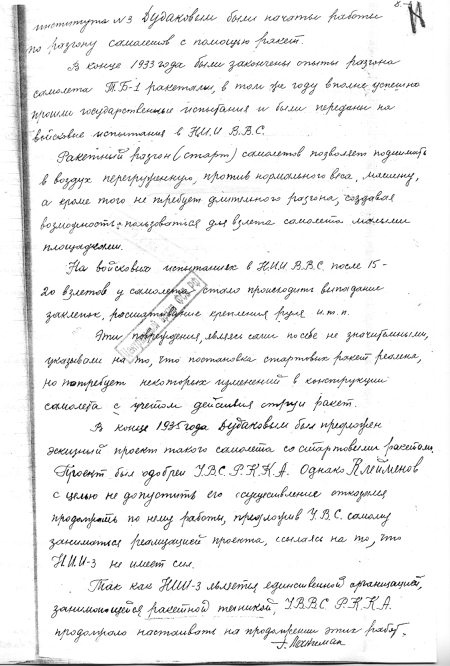 института №3 Дудаковым были начаты работы
по разгону самолетов с помощью ракет.
В конце 1933 года были закончены опыты разгона
самолета Т.Б-1 ракетами, в том же году вполне успешно
прошли государственные испытания и были переданы на
войсковые испытания в НИИ В.В.С.
Ракетный разгон (старт) самолетов позволяет поднимать
в воздух перегруженную, против нормального веса, машину,
а кроме того не требует длительного разгона, создавая
возможность пользоваться для взлета самолета малыми
площадками.
На войсковых испытаниях в НИИ В.В.С. после 15-
20 взлетов у самолета стало происходить выпадание
заклепок, расшатывание крепления руля и.т.п.
Эти повреждения, являясь сами по себе не значительными,
указывали на то, что постановка стартовых ракет реальна,
но потребует некоторых изменений в конструкции
самолета с учетом действия струи ракет.
В конце 1935 года Дудаковым был предложен
эскизный проект такого самолета со стартовыми ракетами.
Проект был одобрен У.В.С. Р.К.К.А. Однако Клейменов
с целью не допустить его осуществление отказался
продолжать по нему работы, предложив У.В.С. самому
заниматься реализацией проекта, ссылаясь на то, что
НИИ-3 не имеет сил.
Так как НИИ-3 является единственной организацией,
занимающейся ракетной техникой, У.В.В.С Р.К.К.А.
продолжало настаивать на продолжении этих работ.